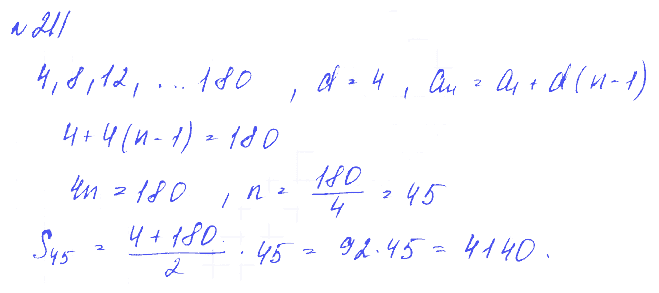 № 211
4, 8, 12, ... 180 , d = 4 , aₙ = a₁ + d(n-1)
4 + 4(n-1) = 180
4n = 180 , n = 180/4 = 45
S₄₅ = (4+180)/2 · 45 = 92·45 = 4140.